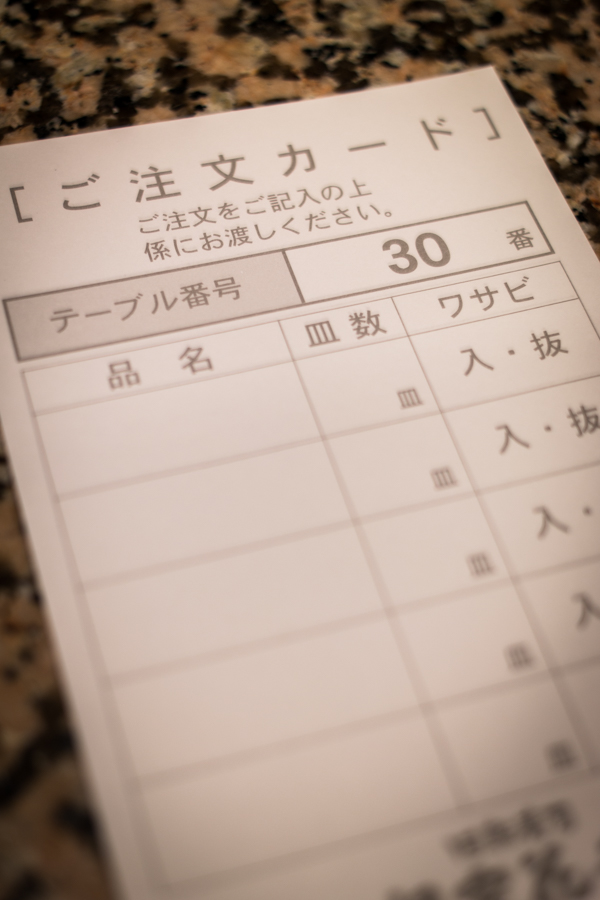 [ご注文カード]
ご注文をご記入の上
係にお渡しください。
テーブル番号 30 番
品 名 皿 数 ワサビ
皿 入・抜
皿 入・抜
皿 入・
皿 入
皿